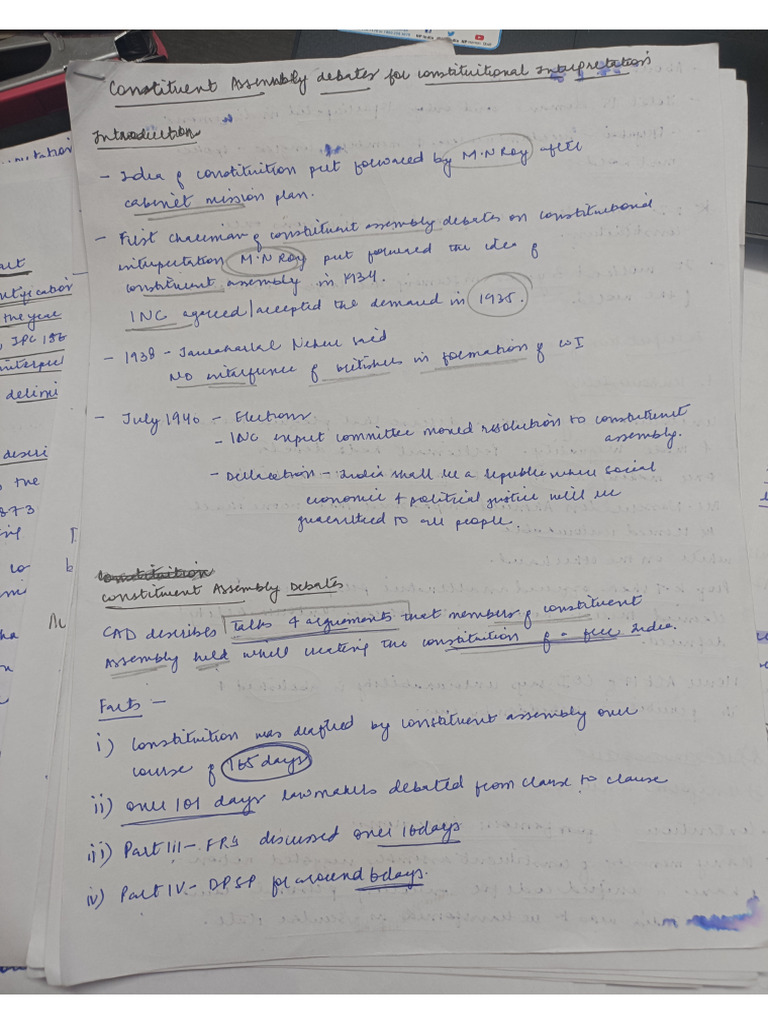 Constituent Assembly debates for constituitional interpretation
Introduction
- Idea of constituition put forward by M.N Roy after
cabinet mission plan.
- First chairman of constituent assembly debates on constituitional
interpretation M.N Roy put forward the idea of
constituent assembly in 1934.
INC agreed/accepted the demand in 1935.
- 1938 - Jawaharlal Nehru said
No interference of britishers in formation of COI
- July 1940 - Elections
- INC input committee moved resolution to constituent
assembly.
- Declaration - India shall be a republic where social
economic & political justice will be
guaranteed to all people.
Constituent Assembly Debates
CAD describes talks & arguements that members of constituent
Assembly held while creating the constitution of a free India.
Facts :-
i) Constituition was drafted by constituent assembly over
course of 165 days
ii) over 101 days lawmakers debated from clause to clause
iii) Part III - FRs discussed over 16 days
iv) Part IV - DPSP for around 6 days.
the year
IPC 186
delimi
the
873